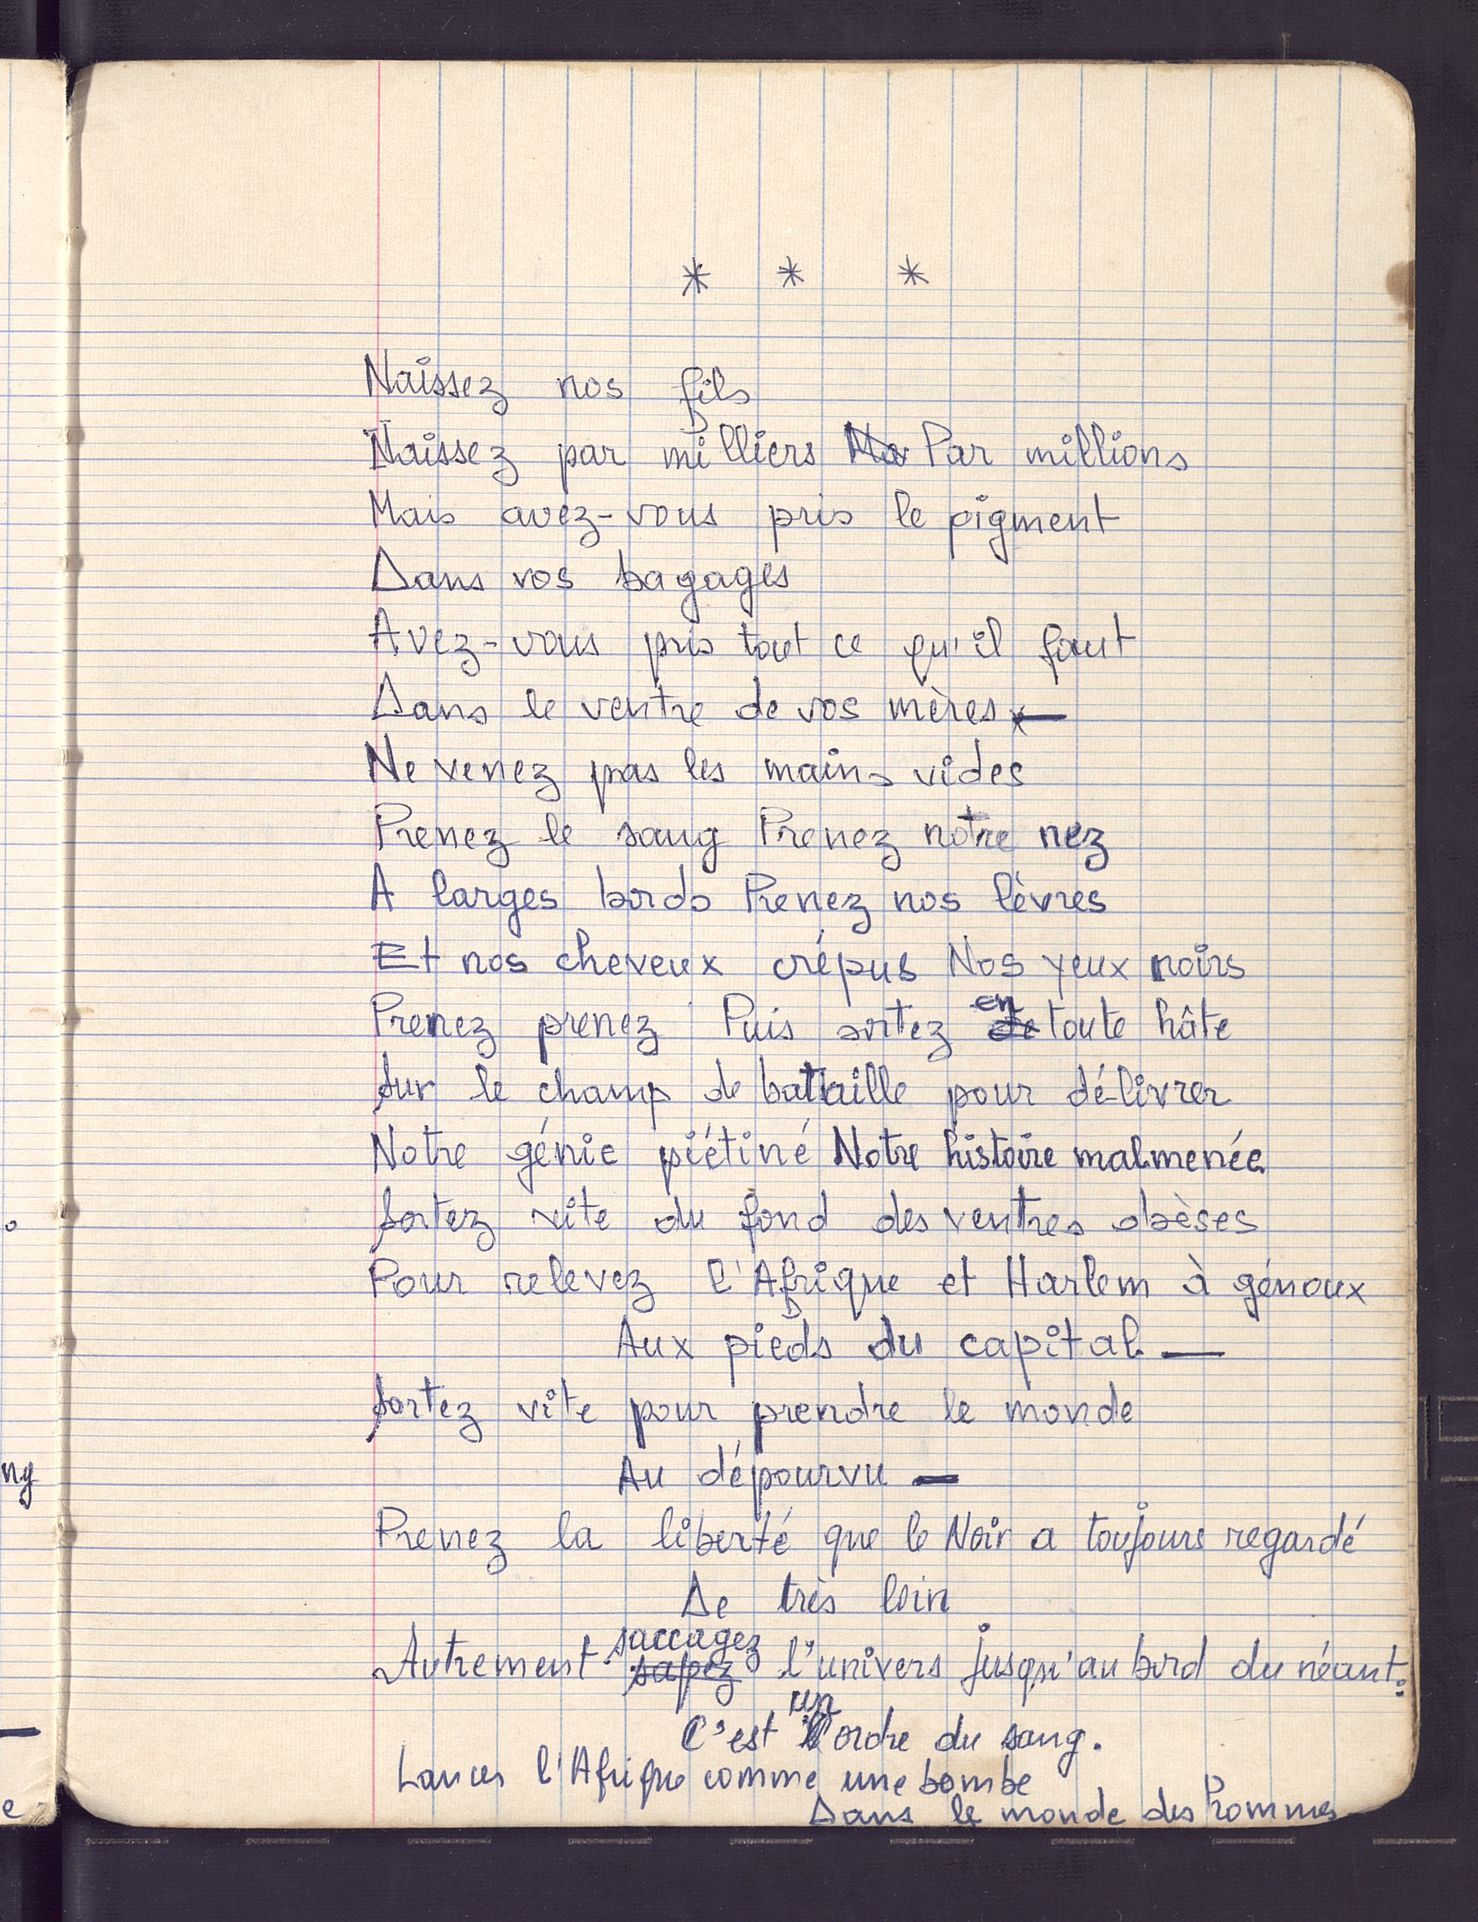 * * *
Naissez nos fils
Naissez par milliers Par millions
Mais avez-vous pris le pigment
Dans vos bagages
Avez-vous pris tout ce qu'il faut
Dans le ventre de vos mères —
Ne venez pas les mains vides
Prenez le sang Prenez notre nez
A larges bords Prenez nos lèvres
Et nos cheveux crépus Nos yeux noirs
Prenez prenez Puis sortez en toute hâte
Sur le champ de bataille pour délivrer
Notre génie piétiné Notre histoire malmenée
Sortez vite du fond des ventres obèses
Pour relevez l'Afrique et Harlem à génoux
Aux pieds du capital —
Sortez vite pour prendre le monde
Au dépourvu —
Prenez la liberté que le Noir a toujours regardé
De très loin
Autrement saccagez l'univers jusqu'au bord du néant:
C'est un ordre du sang.
Lancez l'Afrique comme une bombe
Dans le monde des hommes